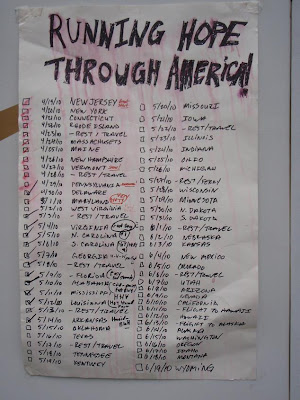 RUNNING HOPE
THROUGH AMERICA!
4/19/10 NEW JERSEY
4/20/10 NEW YORK
4/21/10 CONNECTICUT
4/22/10 RHODE ISLAND
4/23/10 - REST / TRAVEL
4/24/10 MASSACHUSETTS
4/25/10 MAINE
4/26/10 NEW HAMPSHIRE
4/27/10 VERMONT
4/28/10 - REST / TRAVEL
4/29/10 PENNSYLVANIA
4/30/10 DELAWARE
5/1/10 MARYLAND
5/2/10 WEST VIRGINIA
5/3/10 - REST / TRAVEL
5/4/10 VIRGINIA
5/5/10 N. CAROLINA
5/6/10 S. CAROLINA
5/7/10 GEORGIA
5/8/10 - REST / TRAVEL
5/9/10 - FLORIDA
5/10/10 ALABAMA
5/11/10 MISSISSIPPI
5/12/10 LOUISIANA
5/13/10 - REST / TRAVEL
5/14/10 ARKANSAS
5/15/10 OKLAHOMA
5/16/10 TEXAS
5/17/10 - REST / TRAVEL
5/18/10 TENNESSEE
5/19/10 KENTUCKY
5/20/10 MISSOURI
5/21/10 IOWA
5/22/10 - REST / TRAVEL
5/23/10 ILLINOIS
5/24/10 INDIANA
5/25/10 OHIO
5/26/10 MICHIGAN
5/27/10 - REST / TRAVEL
5/28/10 WISCONSIN
5/29/10 MINNESOTA
5/30/10 N. DAKOTA
5/31/10 S. DAKOTA
6/1/10 - REST / TRAVEL
6/2/10 NEBRASKA
6/3/10 KANSAS
6/4/10 NEW MEXICO
6/5/10 COLORADO
- REST/TRAVEL
UTAH
ARIZONA
NEVADA
CALIFORNIA
- FLIGHT TO HAWAII
HAWAII
- FLIGHT TO ALASKA
ALASKA
WASHINGTON
OREGON
IDAHO
MONTANA
WYOMING